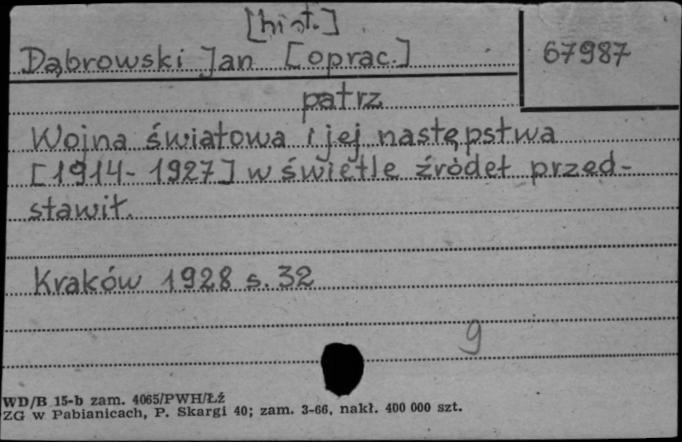 [hist.]
Dąbrowski Jan [oprac.]
67987
patrz
Wojna światowa i jej następstwa
[1914-1927] w świetle źródeł przed-
stawił.
Kraków 1928 s. 32
g
WD/B 15-b zam. 4065/PWH/Łż
ZG w Pabianicach, P. Skargi 40; zam. 3-66, nakł. 400 000 szt.